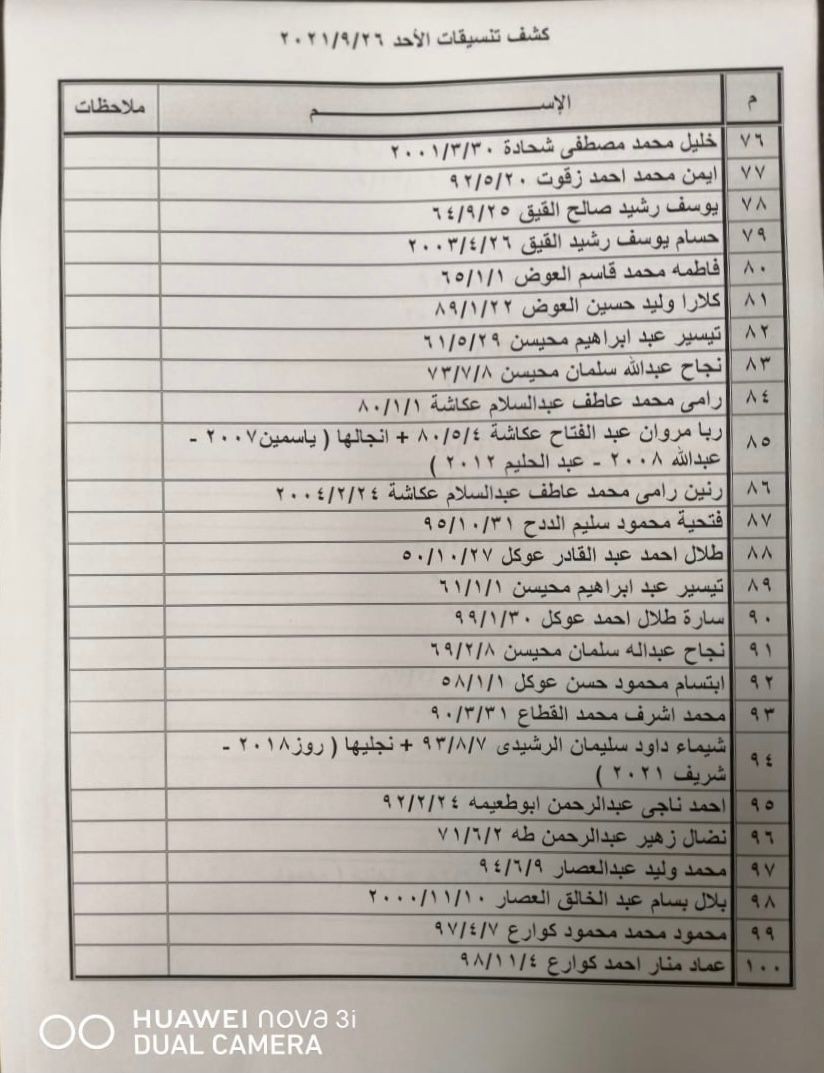 كشف تنسيقات الأحد ٢٠٢١/٩/٢٦
م الإســـــــــم ملاحظات
٧٦ خليل محمد مصطفى شحادة ٢٠٠١/٣/٣٠
٧٧ ايمن محمد احمد زقوت ٩٢/٥/٢٠
٧٨ يوسف رشيد صالح القيق ٦٤/٩/٢٥
٧٩ حسام يوسف رشيد القيق ٢٠٠٣/٤/٢٦
٨٠ فاطمه محمد قاسم العوض ٦٥/١/١
٨١ كلارا وليد حسين العوض ٨٩/١/٢٢
٨٢ تيسير عبد ابراهيم محيسن ٦١/٥/٢٩
٨٣ نجاح عبدالله سلمان محيسن ٧٣/٧/٨
٨٤ رامى محمد عاطف عبدالسلام عكاشة ٨٠/١/١
٨٥ ربا مروان عبد الفتاح عكاشة ٨٠/٥/٤ + انجالها ( ياسمين٢٠٠٧ -
عبدالله ٢٠٠٨ - عبد الحليم ٢٠١٢ )
٨٦ رنين رامى محمد عاطف عبدالسلام عكاشة ٢٠٠٤/٢/٢٤
٨٧ فتحية محمود سليم الددح ٩٥/١٠/٣١
٨٨ طلال احمد عبد القادر عوكل ٥٠/١٠/٢٧
٨٩ تيسير عبد ابراهيم محيسن ٦١/١/١
٩٠ سارة طلال احمد عوكل ٩٩/١/٣٠
٩١ نجاح عبداله سلمان محيسن ٦٩/٢/٨
٩٢ ابتسام محمود حسن عوكل ٥٨/١/١
٩٣ محمد اشرف محمد القطاع ٩٠/٣/٣١
٩٤ شيماء داود سليمان الرشيدى ٩٣/٨/٧ + نجليها ( روز٢٠١٨ -
شريف ٢٠٢١ )
٩٥ احمد ناجى عبدالرحمن ابوطعيمه ٩٢/٢/٢٤
٩٦ نضال زهير عبدالرحمن طه ٧١/٦/٢
٩٧ محمد وليد عبدالعصار ٩٤/٦/٩
٩٨ بلال بسام عبد الخالق العصار ٢٠٠٠/١١/١٠
٩٩ محمود محمد محمود كوارع ٩٧/٤/٧
١٠٠ عماد منار احمد كوارع ٩٨/١١/٤
HUAWEI nova 3i
DUAL CAMERA